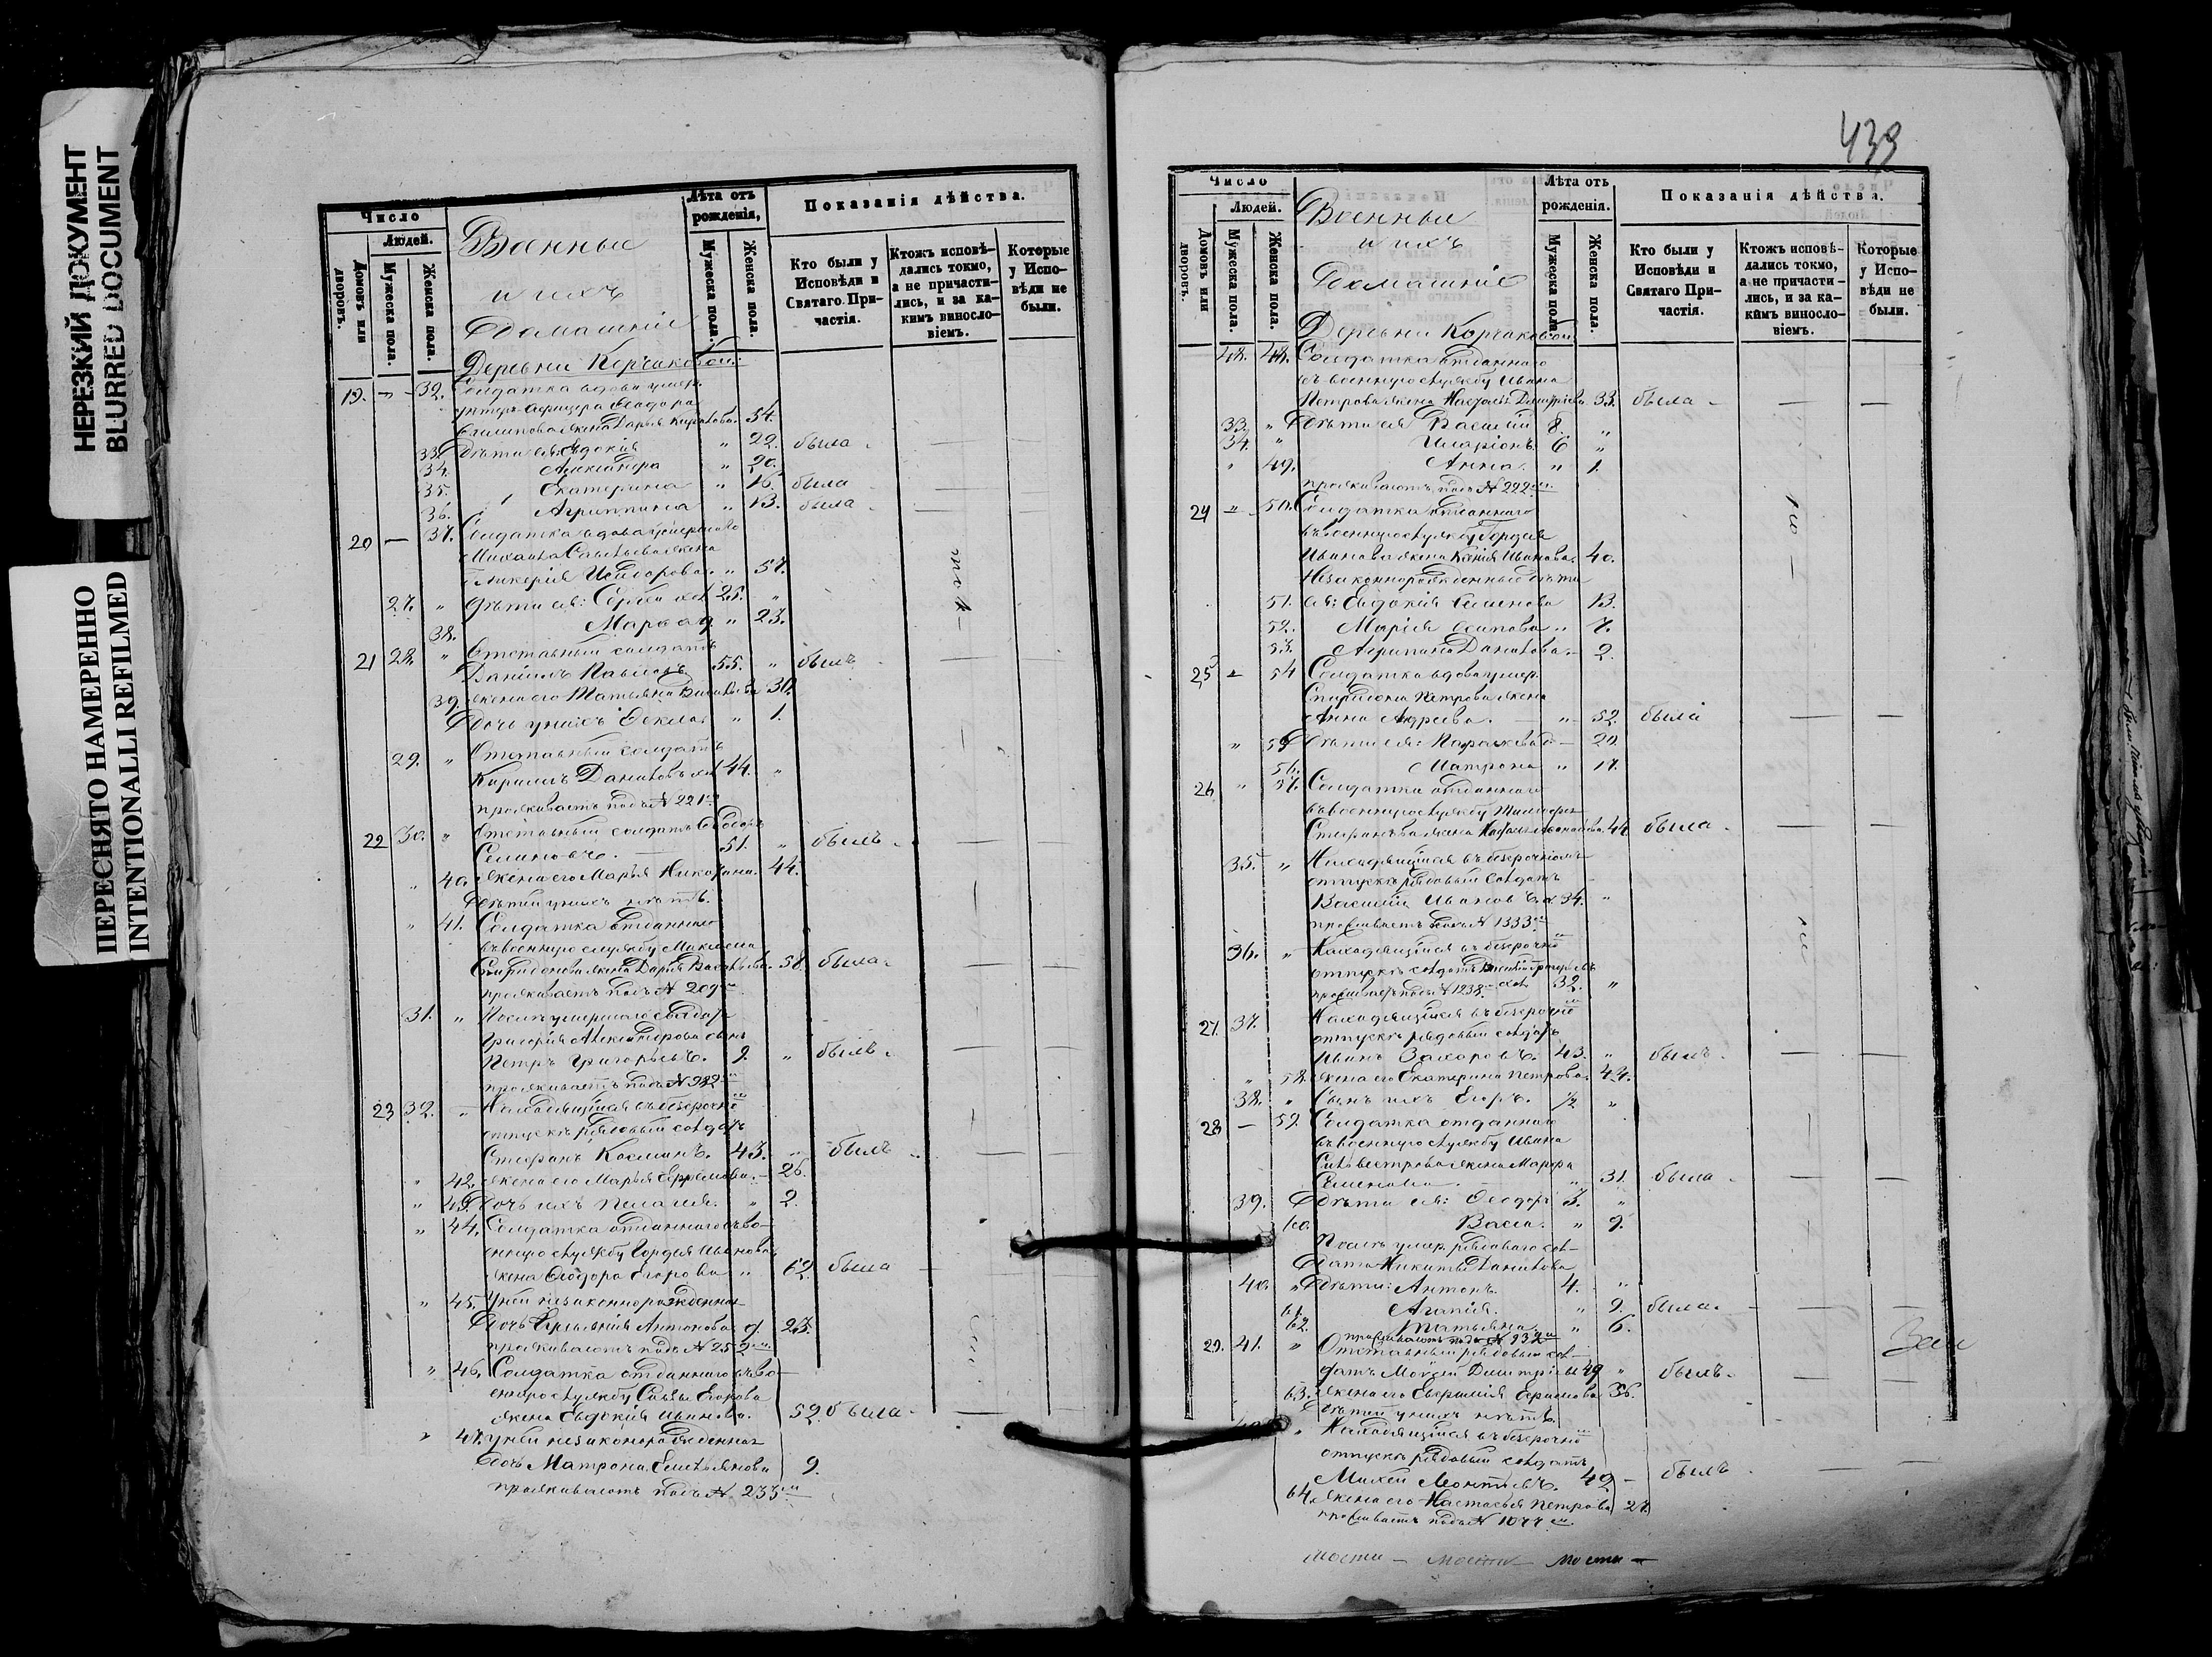 НЕРЕЗКИЙ ДОКУМЕНТ
BLURRED DOCUMENT
ПЕРЕСНЯТО НАМЕРЕННО
INTENTIONALLI REFILMED
Число
Людей.
Домовъ или дворовъ.
Мужеска пола.
Женска пола.
Военные
и ихъ
Домашніе
Деревни Корчаковой:
Лѣта отъ рожденія,
Мужеска пола.
Женска пола.
Показанія дѣйства.
Кто были у Исповѣди и Святаго Причастія.
Ктожъ исповѣдались токмо, а не причастились, и за какимъ винословіемъ.
Которые у Исповѣди не были.
19. 32. Солдатка вдова умер.
унтеръ-офицера Ѳеодора
жена Дарья 54.
33. Дѣти ея: Евдокія " 22. была
34. Александра " 20.
35. Екатерина " 16. была
36. Агриппина " 13. была
20 — 37. Солдатка вдова умершаго
Михаила Савельева жена
Гликерія Исидорова. " 57.
27. " Дѣти ея: Сергей 25. "
38. Марѳа " 23.
21 28. " Отставный солдатъ
Даніилъ Павловъ 55. " былъ
39. жена его Татьяна Васильева 30.
Дочь у нихъ Ѳекла. " 1.
29. " Отставный солдатъ
Кириллъ Даниловъ 44. "
проживаетъ подъ № 221
22 30. " Отставный солдатъ Ѳеодоръ
Семеновъ. 51. " былъ
" 40. жена его Марья 44.
Дѣтей у нихъ нѣтъ.
" 41. Солдатка отданнаго
въ военную службу Максима
Спиридонова жена Дарья Васильева. 58. была
проживаетъ подъ № 209
31. " Послѣ умершаго солдата
Григорія Александрова сынъ
Петръ Григорьевъ. 9. " былъ
проживаетъ подъ №
23 32. " Находящійся въ безсрочно
отпускѣ рядовый солдатъ
Стефанъ Косминъ. 43. " былъ
" 42. жена его Марья Ефремова. 26.
" 43. Дочь ихъ Пелагея. " 2.
" 44. Солдатка отданнаго въ во-
енную службу Гордея Иванова
жена Ѳеодора Егорова " 62. была
" 45. У ней незаконнорожденная
Дочь Антонова 23.
проживаютъ подъ № 252
" 46. Солдатка отданнаго въ во-
енную службу Саввы Егорова
жена Евдокія Иванова. 52. была
" 47. У ней незаконорожденная
Дочь Матрона Емельянова 9.
проживаютъ подъ № 233
433
Число
Людей.
Домовъ или дворовъ.
Мужеска пола.
Женска пола.
Военные
и ихъ
Домашніе
Деревни Корчаковой
Лѣта отъ рожденія.
Мужеска пола.
Женска пола.
Показанія дѣйства.
Кто были у Исповѣди и Святаго Причастія.
Ктожъ исповѣдались токмо, а не причастились, и за какимъ винословіемъ.
Которые у Исповѣди не были.
48. Солдатка отданнаго
въ военную службу Ивана
Петрова жена Наталья Дмитріева 33. была
33. " Дѣти ея Василій 8. "
34. " Иларіонъ 6 "
" 49. Анна. " 1.
проживаютъ подъ № 222
24 " 50. Солдатка отданнаго
въ военную службу Гордея
Иванова жена Ксенія Иванова. 40.
Незаконнорожденные дѣти
51. ея: Евдокія Семенова 13.
52. Марія Осипова " 7.
53. Агрипина Данилова. 2.
25 54 Солдатка вдова умер.
Спиридона Петрова жена
Анна Андреева. " 52. была
" 55 Дѣти ея: Параскева 20.
56. Матрона " 17.
26 " 57. Солдатка отданнаго
въ военную службу Тимофея
Стефанова жена 44. была
35. " Находящійся въ безсрочномъ
отпускѣ рядовый солдатъ
Василій Ивановъ 34. "
проживаетъ подъ № 1333
36. " Находящійся въ безсрочно
отпускѣ солдатъ Василій Григорьевъ
проживаетъ подъ № 1238. 32. "
27 37. Находящійся въ безсрочно
отпускѣ рядовый солдатъ
Иванъ Захаровъ. 43. " былъ
" 58. жена его Екатерина Петрова. 44.
38. " Сынъ ихъ Егоръ. ½ "
28 — 59. Солдатка отданнаго
въ военную службу Ивана
Сильвестрова жена Марѳа
Семенова. " 31. была
39. Дѣти ея: Ѳеодоръ 3. "
60. Васса. " 9.
Послѣ умер. рядоваго сол-
дата Никиты Данилова
40. " Дѣти: Антонъ. 4. "
61. Агапія. " 9. была
62. Татьяна " 6.
проживаютъ подъ № 232
29. 41. " Отставный рядовый сол-
датъ Моѵсей Димитріевъ 49 " былъ
63. жена его Евфимія Ефимова 36.
Дѣтей у нихъ нѣтъ.
" Находящійся въ безсрочно
отпускѣ рядовый солдатъ
Михей Леонтьевъ. 42 – былъ
64. жена его Настасья Петрова 27.
проживаетъ подъ № 1077
мости – мости – мости –